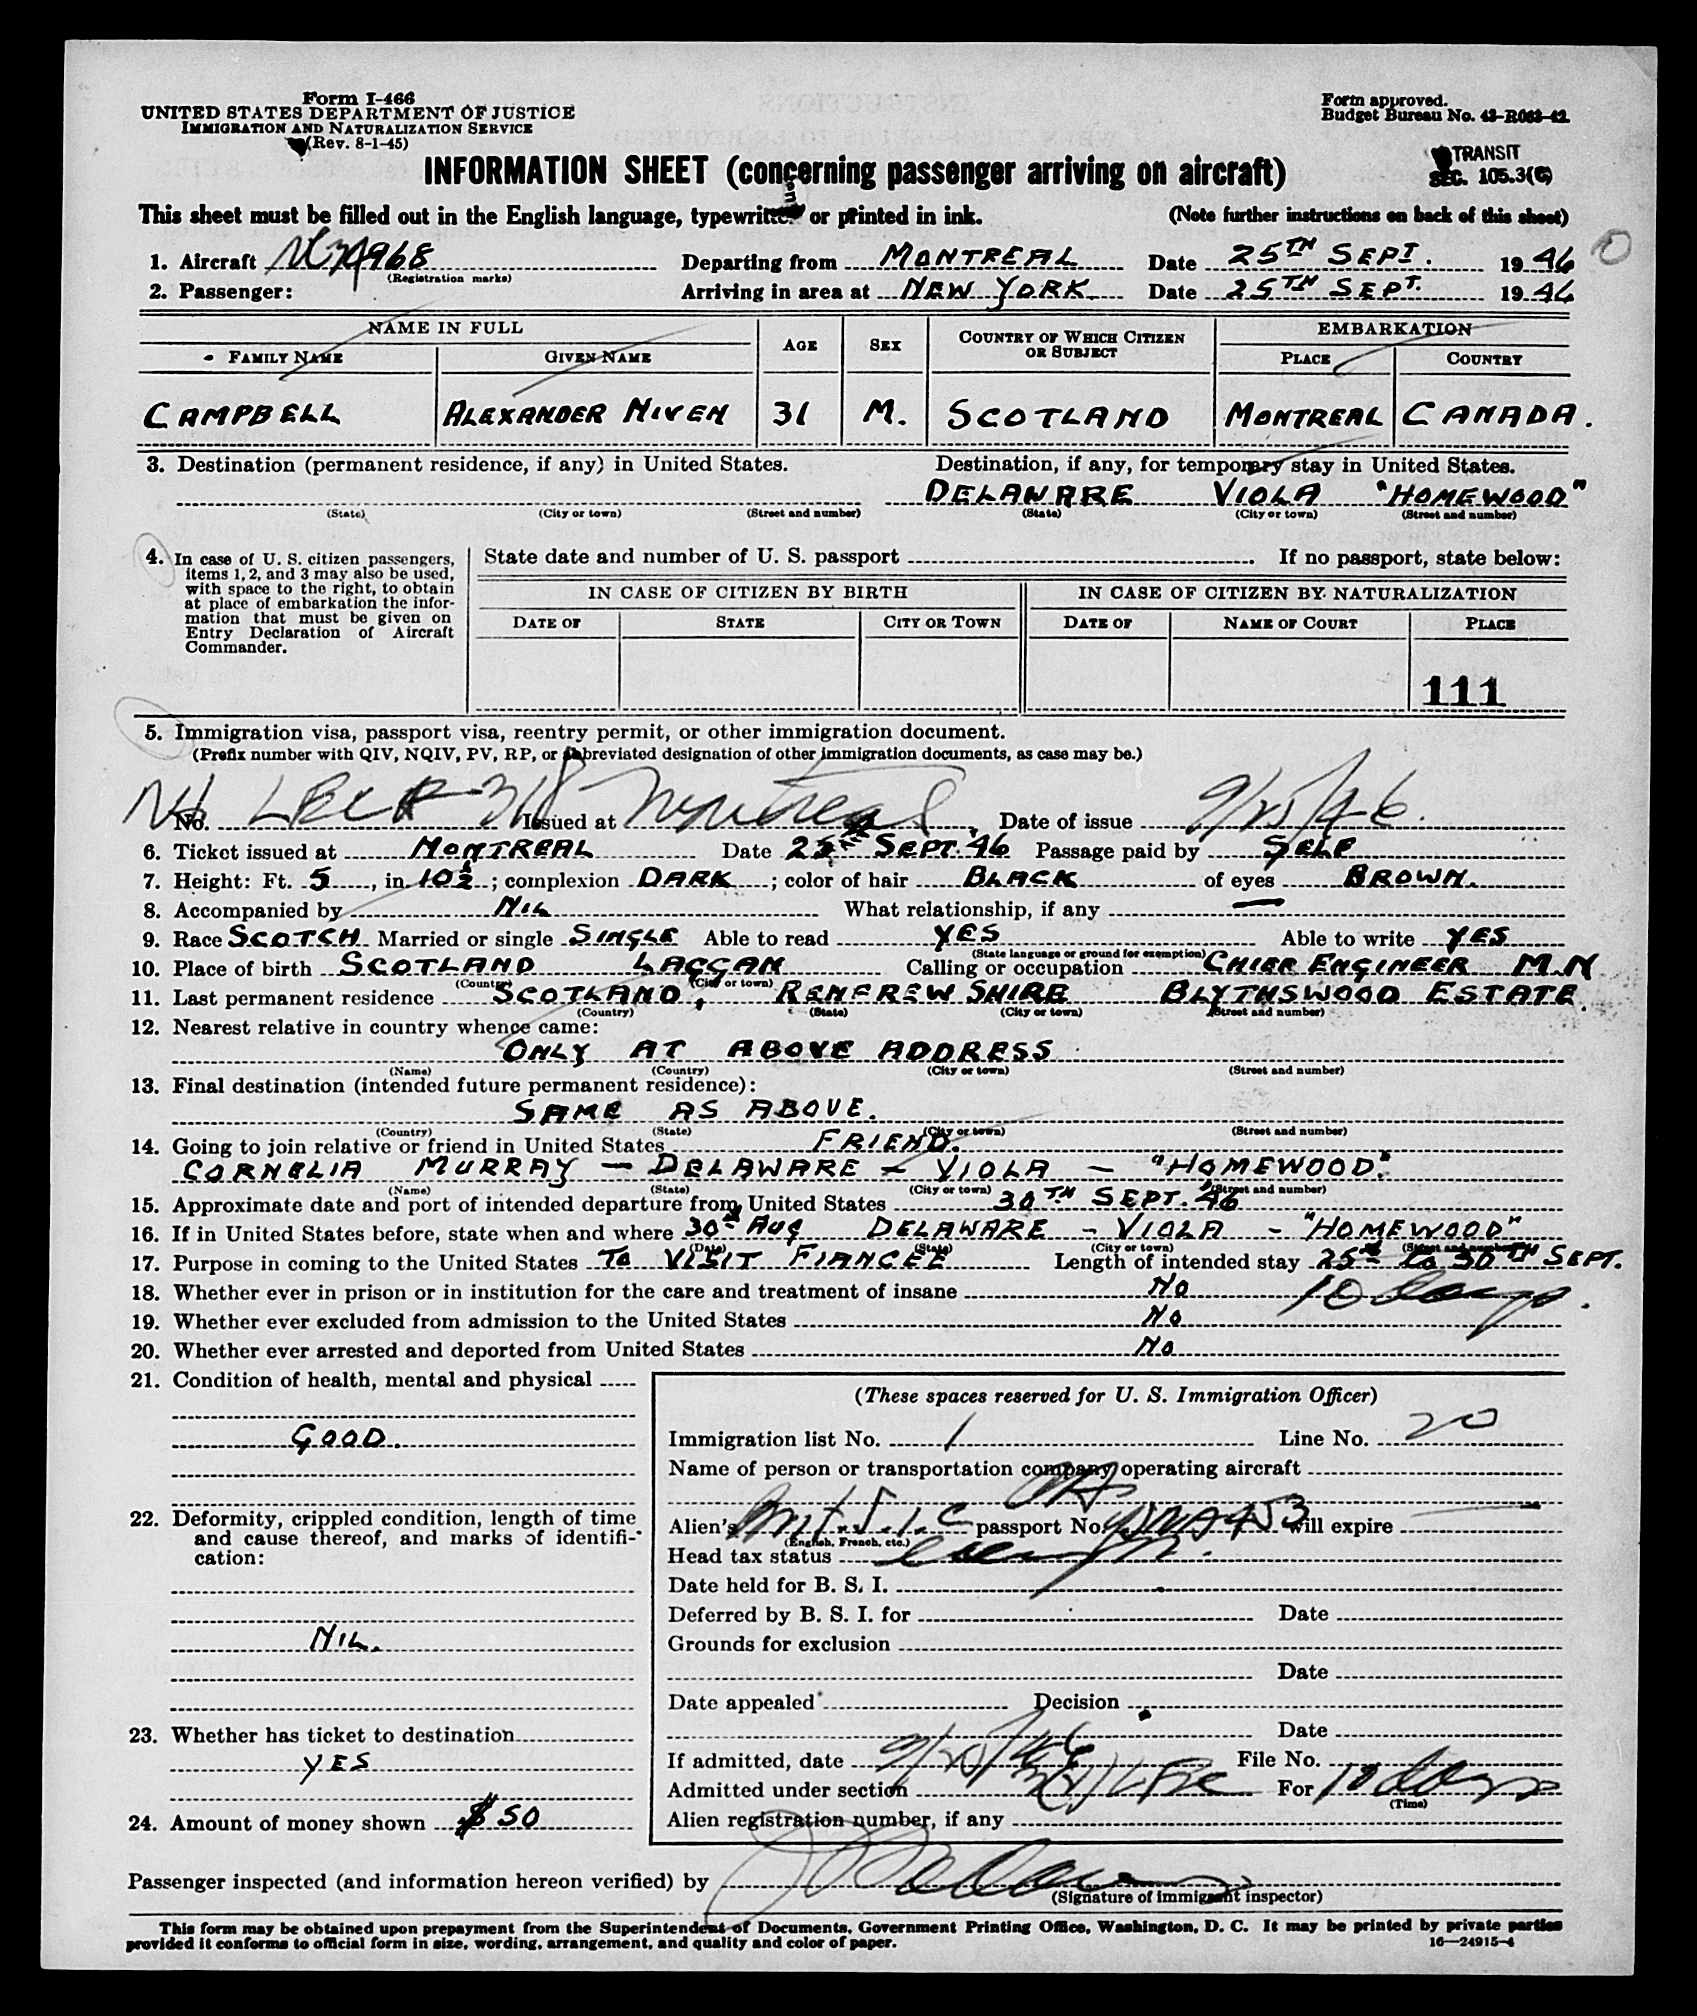 Form I-466
UNITED STATES DEPARTMENT OF JUSTICE
IMMIGRATION AND NATURALIZATION SERVICE
(Rev. 8-1-45)
Form approved.
Budget Bureau No. 43-R063-42.
INFORMATION SHEET (concerning passenger arriving on aircraft)
TRANSIT
SEC. 105.3(C)
This sheet must be filled out in the English language, typewritten or printed in ink. (Note further instructions on back of this sheet)
1. Aircraft (Registration marks) Departing from MONTREAL Date 25TH SEPT. 1946
2. Passenger: Arriving in area at NEW YORK Date 25TH SEPT. 1946
NAME IN FULL AGE SEX COUNTRY OF WHICH CITIZEN OR SUBJECT EMBARKATION
FAMILY NAME GIVEN NAME PLACE COUNTRY
CAMPBELL ALEXANDER NIVEN 31 M. SCOTLAND MONTREAL CANADA.
3. Destination (permanent residence, if any) in United States. Destination, if any, for temporary stay in United States.
DELAWARE VIOLA "HOMEWOOD"
(State) (City or town) (Street and number) (State) (City or town) (Street and number)
4. In case of U. S. citizen passengers, items 1, 2, and 3 may also be used, with space to the right, to obtain at place of embarkation the information that must be given on Entry Declaration of Aircraft Commander.
State date and number of U. S. passport If no passport, state below:
IN CASE OF CITIZEN BY BIRTH IN CASE OF CITIZEN BY NATURALIZATION
DATE OF STATE CITY OR TOWN DATE OF NAME OF COURT PLACE
111
5. Immigration visa, passport visa, reentry permit, or other immigration document.
(Prefix number with QIV, NQIV, PV, RP, or abbreviated designation of other immigration documents, as case may be.)
No. Issued at Montreal Date of issue 9/25/46
6. Ticket issued at MONTREAL Date 25TH SEPT. '46 Passage paid by SELF
7. Height: Ft. 5, in. 10½; complexion DARK; color of hair BLACK of eyes BROWN.
8. Accompanied by NIL What relationship, if any —
9. Race SCOTCH Married or single SINGLE Able to read YES Able to write YES
(State language or ground for exemption)
10. Place of birth SCOTLAND LAGGAN Calling or occupation CHIEF ENGINEER M.N
(Country) (City or town)
11. Last permanent residence SCOTLAND, RENFREWSHIRE BLYTHSWOOD ESTATE.
(Country) (State) (City or town) (Street and number)
12. Nearest relative in country whence came:
ONLY AT ABOVE ADDRESS
(Name) (Country) (City or town) (Street and number)
13. Final destination (intended future permanent residence):
SAME AS ABOVE.
(Country) (State) (City or town) (Street and number)
14. Going to join relative or friend in United States FRIEND.
CORNELIA MURRAY — DELAWARE — VIOLA — "HOMEWOOD."
(Name) (State) (City or town) (Street and number)
15. Approximate date and port of intended departure from United States 30TH SEPT. '46
16. If in United States before, state when and where 30TH AUG DELAWARE - VIOLA - "HOMEWOOD"
(Date) (State) (City or town) (Street and number)
17. Purpose in coming to the United States TO VISIT FIANCEE Length of intended stay 25TH to 30TH SEPT.
18. Whether ever in prison or in institution for the care and treatment of insane NO 10 days.
19. Whether ever excluded from admission to the United States NO
20. Whether ever arrested and deported from United States NO
21. Condition of health, mental and physical
GOOD.
22. Deformity, crippled condition, length of time and cause thereof, and marks of identification:
NIL.
23. Whether has ticket to destination
YES
24. Amount of money shown $50
(These spaces reserved for U. S. Immigration Officer)
Immigration list No. 1 Line No. 20
Name of person or transportation company operating aircraft
Alien's passport No. will expire
(English, French, etc.)
Head tax status
Date held for B. S. I.
Deferred by B. S. I. for Date
Grounds for exclusion
Date
Date appealed Decision
Date
If admitted, date 9/25/46 File No.
Admitted under section For 10 days
(Time)
Alien registration number, if any
Passenger inspected (and information hereon verified) by
(Signature of immigrant inspector)
This form may be obtained upon prepayment from the Superintendent of Documents, Government Printing Office, Washington, D. C. It may be printed by private parties
provided it conforms to official form in size, wording, arrangement, and quality and color of paper. 16—24915-4